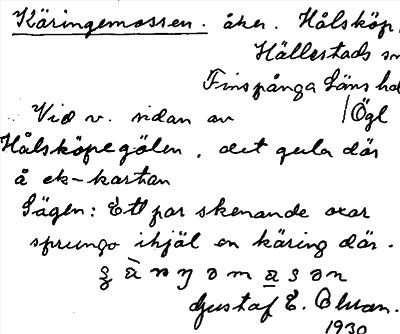 Käringemossen. åker. Hålsköp,
Hällestads sn
Finspånga läns hd
Vid v. sidan av /Ögl
Hålsköpegölen, det gula där
å ek-kartan
Sägen: Ett par skenande oxar
sprungo ihjäl en käring där.
Gustaf E. 
1930